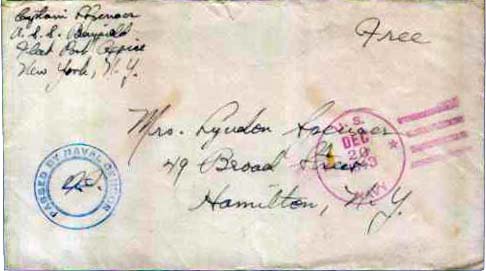 U.S.S. Bayfield
Fleet Post Office
New York, N.Y.
Free
Mrs. Lyndon
49 Broad Street
Hamilton, N.Y.
U.S.
DEC
20
1943
NAVY
PASSED BY NAVAL CENSOR